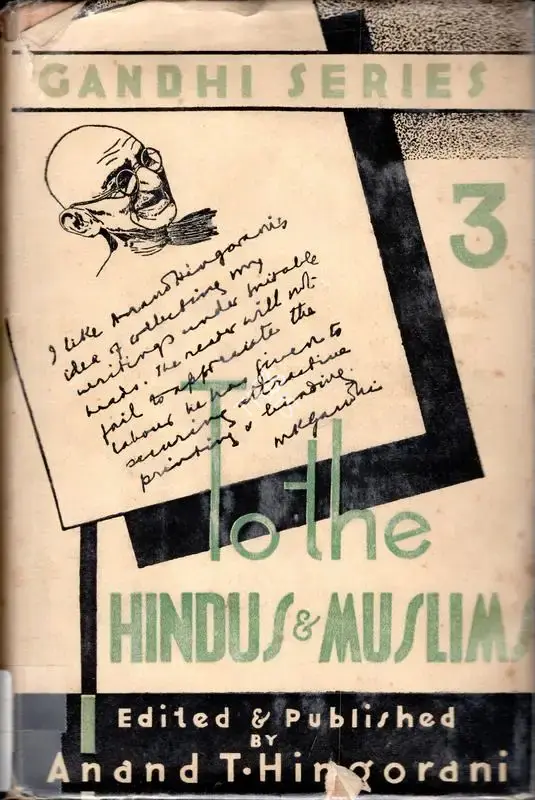 GANDHI SERIES
3
I like Anand Hingorani's
idea of collecting my
writings under suitable
heads. The reader will not
fail to appreciate the
labour he has given to
securing attractive
printing & binding.
MKGandhi
To the
HINDUS & MUSLIMS
Edited & Published
BY
Anand T. Hingorani